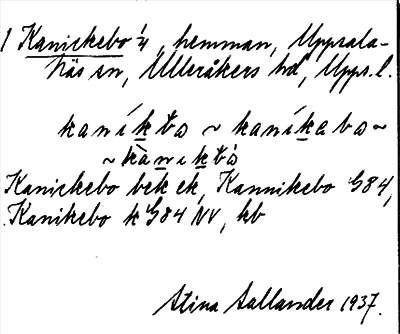 1 Kanickebo 1/4, hemman, Uppsala-
Näs sn, Ulleråkers hd, Upps. l.
kaníkbo ~ kaníkabo ~
~ kànikbó
Kanickebo bek ek, Kannikebo G84,
Kanikebo k G84 NV, hb
Stina Sallander 1937.